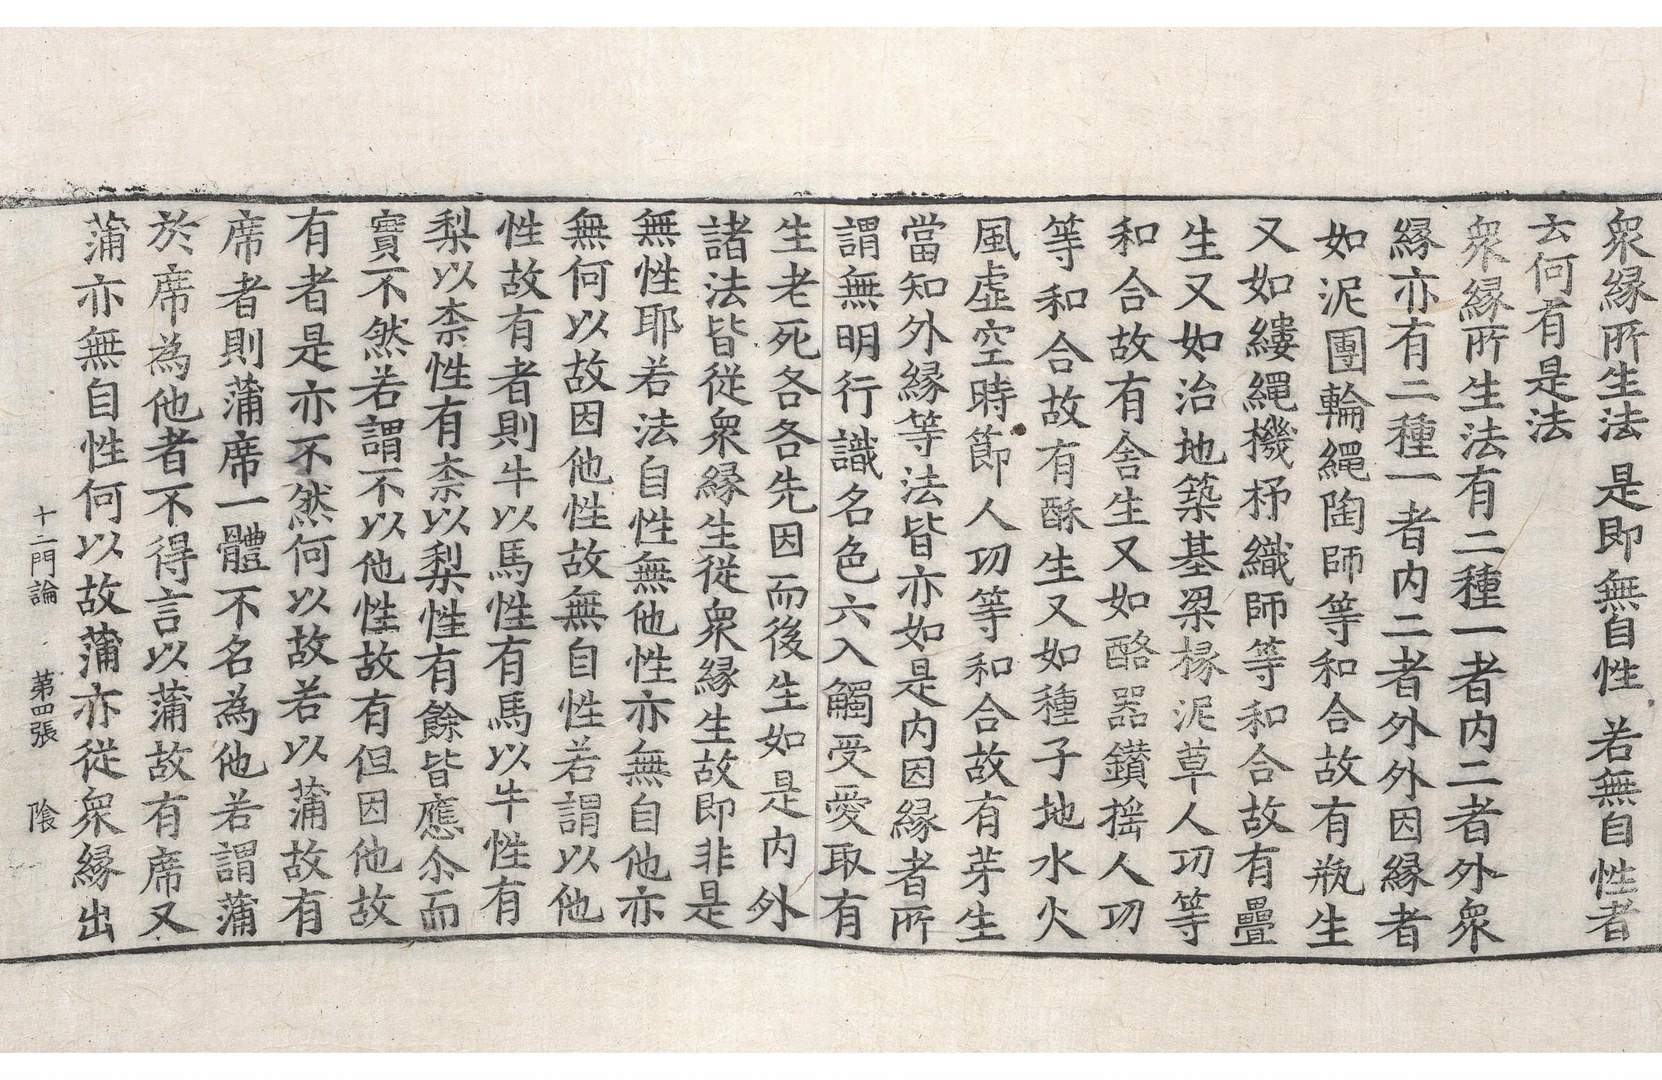 衆縁所生法 是即無自性 若無自性者
云何有是法
衆縁所生法有二種一者内二者外衆
縁亦有二種一者内二者外外因縁者
如泥團輪繩陶師等和合故有瓶生
又如縷繩機杼織師等和合故有疊
生又如治地築基梁椽泥草人功等
和合故有舍生又如酪器鑚摇人功
等和合故有酥生又如種子地水火
風虛空時節人功等和合故有芽生
當知外縁等法皆亦如是内因縁者所
謂無明行識名色六入觸受愛取有
生老死各各先因而後生如是内外
諸法皆從衆縁生從衆縁生故即非是
無性耶若法自性無他性亦無自他亦
無何以故因他性故無自性若謂以他
性故有者則牛以馬性有馬以牛性有
梨以柰性有柰以梨性有餘皆應尒而
實不然若謂不以他性故有但因他故
有者是亦不然何以故若以蒲故有
席者則蒲席一體不名為他若謂蒲
於席為他者不得言以蒲故有席又
蒲亦無自性何以故蒲亦從衆縁出
十二門論 第四張 陰